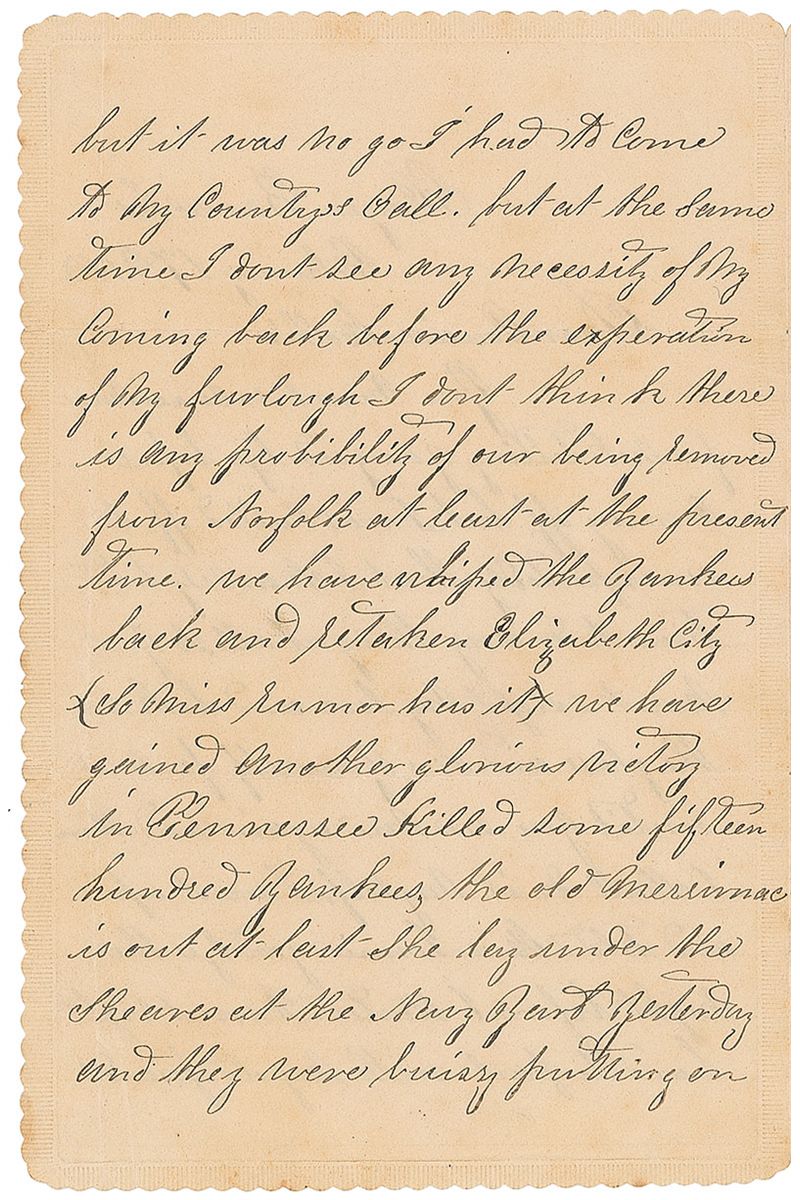 but it was no go I had to Come
to My Country's Call. but at the Same
time I dont see any necessity of My
Coming back before the experation
of My furlough I dont think there
is any probibility of our being removed
from Norfolk at least at the present
time. we have whiped the Yankees
back and retaken Elizabeth City
(So Miss rumor has it) we have
gained another glorious victory
in Tennessee Killed some fifteen
hundred Yankees, the old Merrimac
is out at last She lay under the
Shears at the Navy Yard Yesterday
and they were buissy putting on